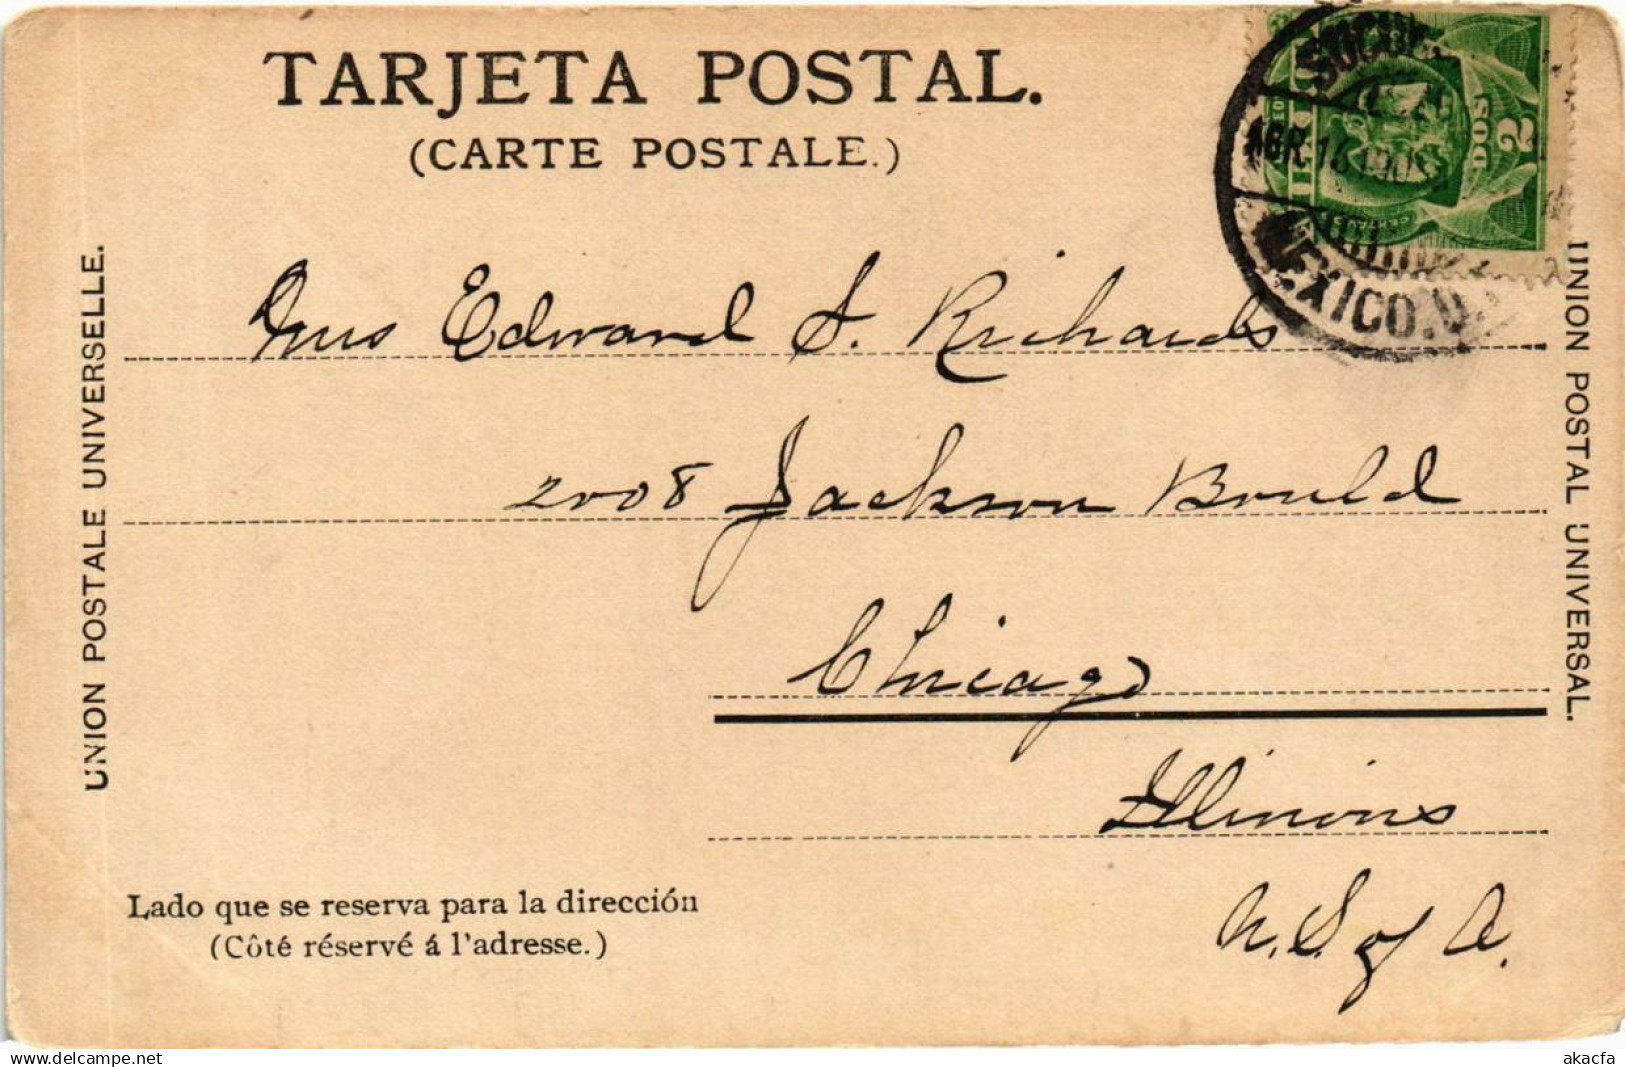 TARJETA POSTAL.
(CARTE POSTALE.)
DOS
2
ABR 16
MEXICO.
UNION POSTALE UNIVERSELLE.
UNION POSTAL UNIVERSAL.
Mrs Edward S. Richards
2008 Jackson Bould
Chicago
Illinois
U. S. of A.
Lado que se reserva para la dirección
(Côté réservé á l'adresse.)
www.delcampe.net
akacfa